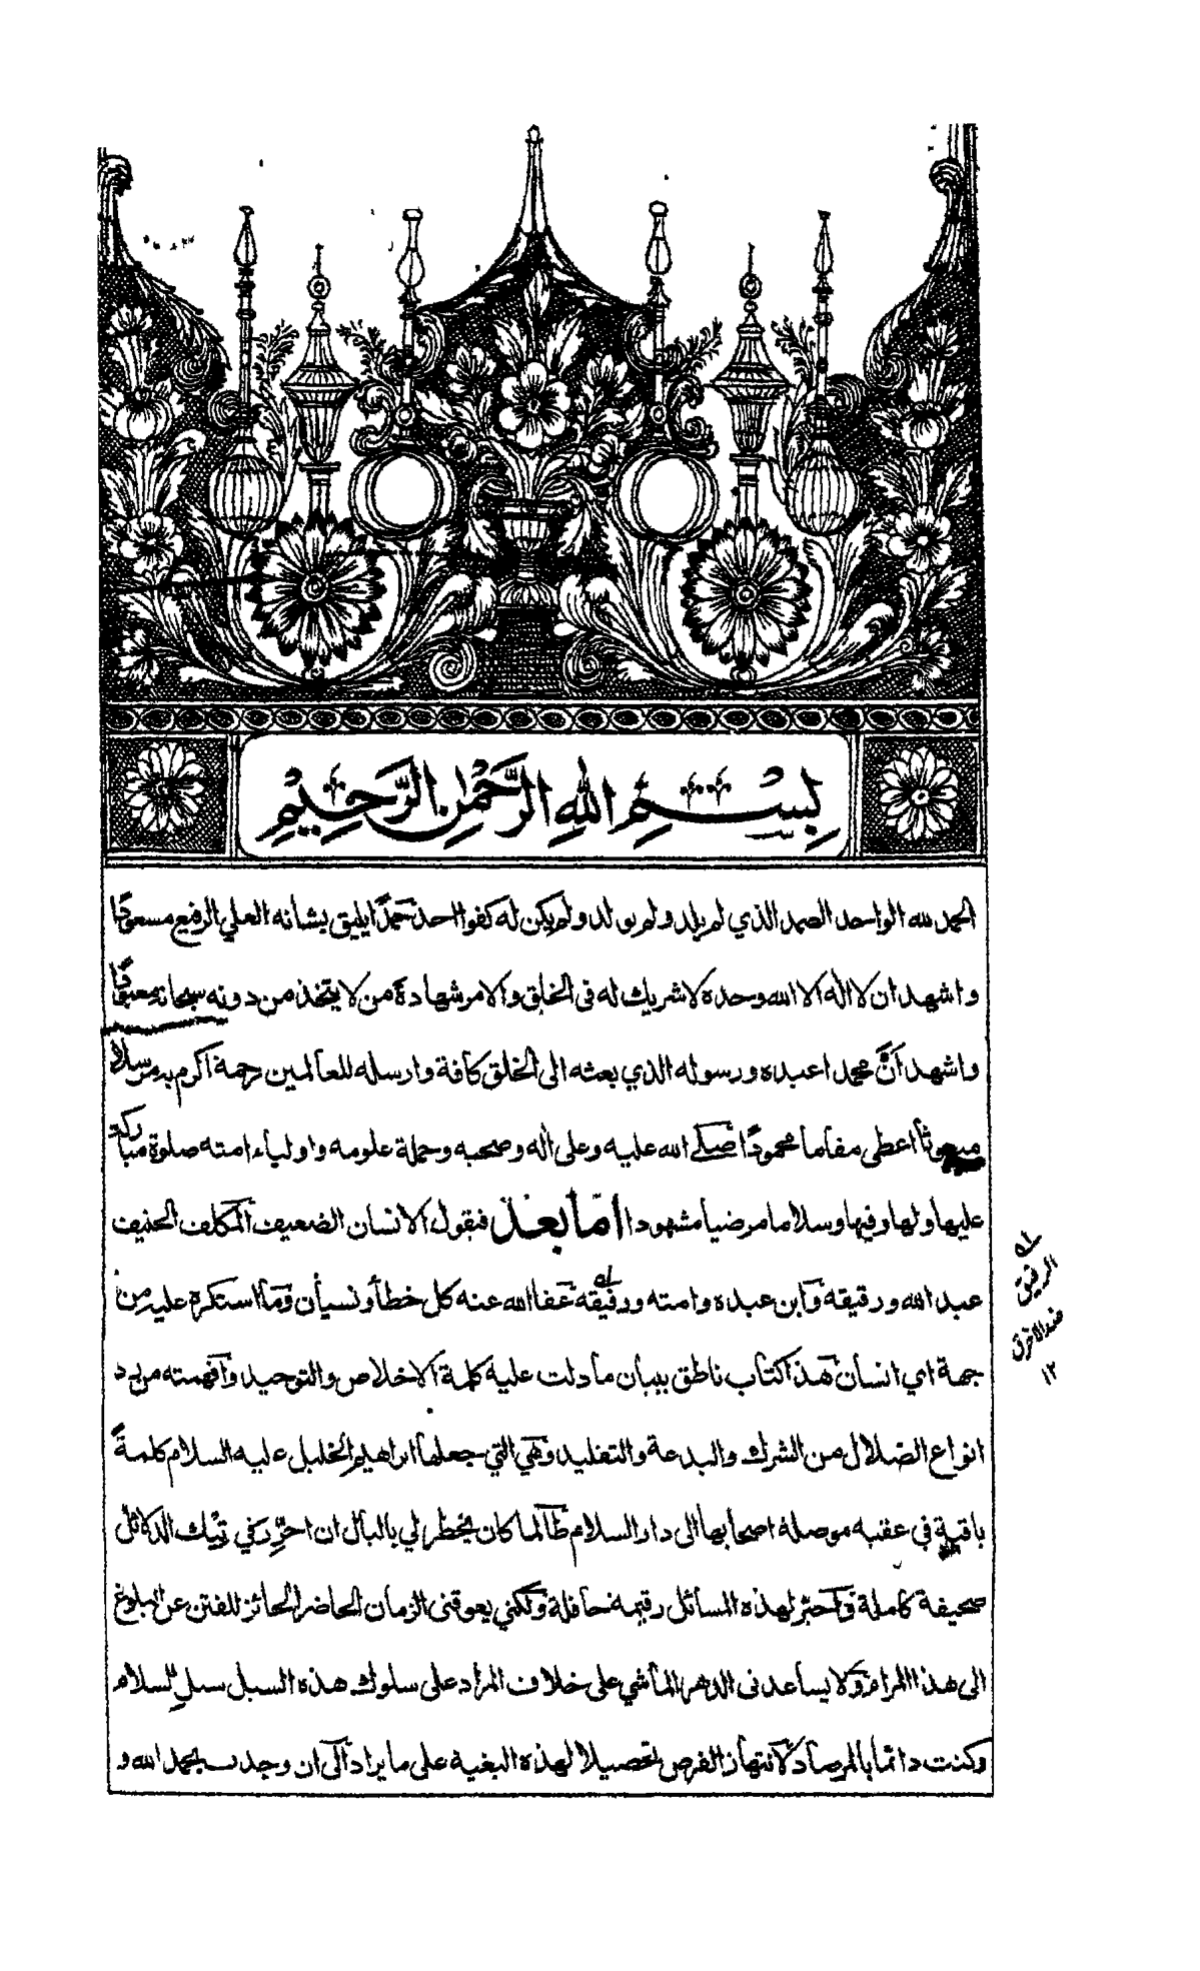 بِسْمِ اللهِ الرَّحْمٰنِ الرَّحِيْمِ
الحمد لله الواحد الصمد الذي لم يلد ولم يولد ولم يكن له كفوا احد حمدًا يليق بشانه العلي الرفيع مسعودًا
واشهد ان لا اله الا الله وحده لا شريك له فى الخلق والامر شهادة من لا يتخذ من دونه سبحانه معبودًا
واشهد انَّ محمدا عبده ورسوله الذي بعثه الى الخلق كافة وارسله للعالمين رحمة اكرم به مرسلا
مبعوثا اعطى مقاما محمودًا صلى الله عليه وعلى اٰله وصحبه وحملة علومه واولياء امته صلوة مباركة
عليها ولها وفيها وسلاما مرضيا مشهودا امّا بعد فيقول الانسان الضعيف المكلف الحنيف
عبد الله ورقيقه وابن عبده وامته ورقيقه عفا الله عنه كل خطأ ونسيان وما استكره عليه من
جهة اي انسان هذا كتاب ناطق ببيان ما دلت عليه كلمة الاخلاص والتوحيد وافهمته من رد
انواع الضلال من الشرك والبدعة والتقليد وهي التي جعلها ابراهيم الخليل عليه السلام كلمةً
باقية في عقبه موصلة اصحابها الى دار السلام طالما كان يخطر لي بالبال ان احرِّر في تيك الدلائل
صحيفة كاملة واحبِّر لهذه المسائل رقيمة حافلة ولكني يعوقنى الزمان الحاضر الحائز للفتن عن البلوغ
الى هذا المرام ولا يساعدنى الدهر الماشي على خلاف المراد على سلوك هذه السبل سبل السلام
وكنت دائما بالمرصاد لانتهاز الفرص تحصيلا لهذه البغية على ما يراد الى ان وجدت بحمد الله و
الرفيق
ضد الاخرق
١٢